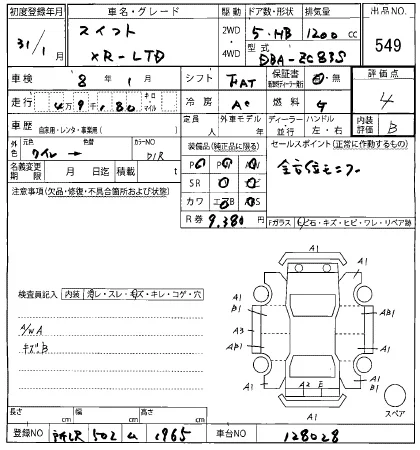 初度登録年月 車名・グレード 駆動 ドア数・形状 排気量 出品NO.
31/1 スイフト XR-LTD 2WD 4WD 5・HB 1200cc 549
型式 DBA-ZC83S
車検 8年1月 シフト FAT 保証書 有・無 評価点
走行 4万9千180 キロ・マイル 冷房 AC 燃料 G 4
車歴 自家用・レンタ・事業用( ) 定員 人 外車モデル 年 ディーラー 並行 ハンドル 左・右 内装評価 B
外色 元色 色替 カラーNO 装備品(純正品に限る) セールスポイント(正常に作動するもの)
名義変更期限 月 日迄 積載 t
注意事項(欠品・修復・不具合箇所および状態) SR
カワ エアB ABS
R券 9,380円
Fガラス 石・キズ・ヒビ・ワレ・リペア跡
検査員記入 内装 コレ・スレ・キズ・キレ・コゲ・穴
A/W A
キズ.B
A1
A1 A1
B1 AB1
A3
AB1 A1
A1
A2 E
A1
スペア
長さ cm 幅 cm 高さ cm
登録NO 502 1965 車台NO 128028